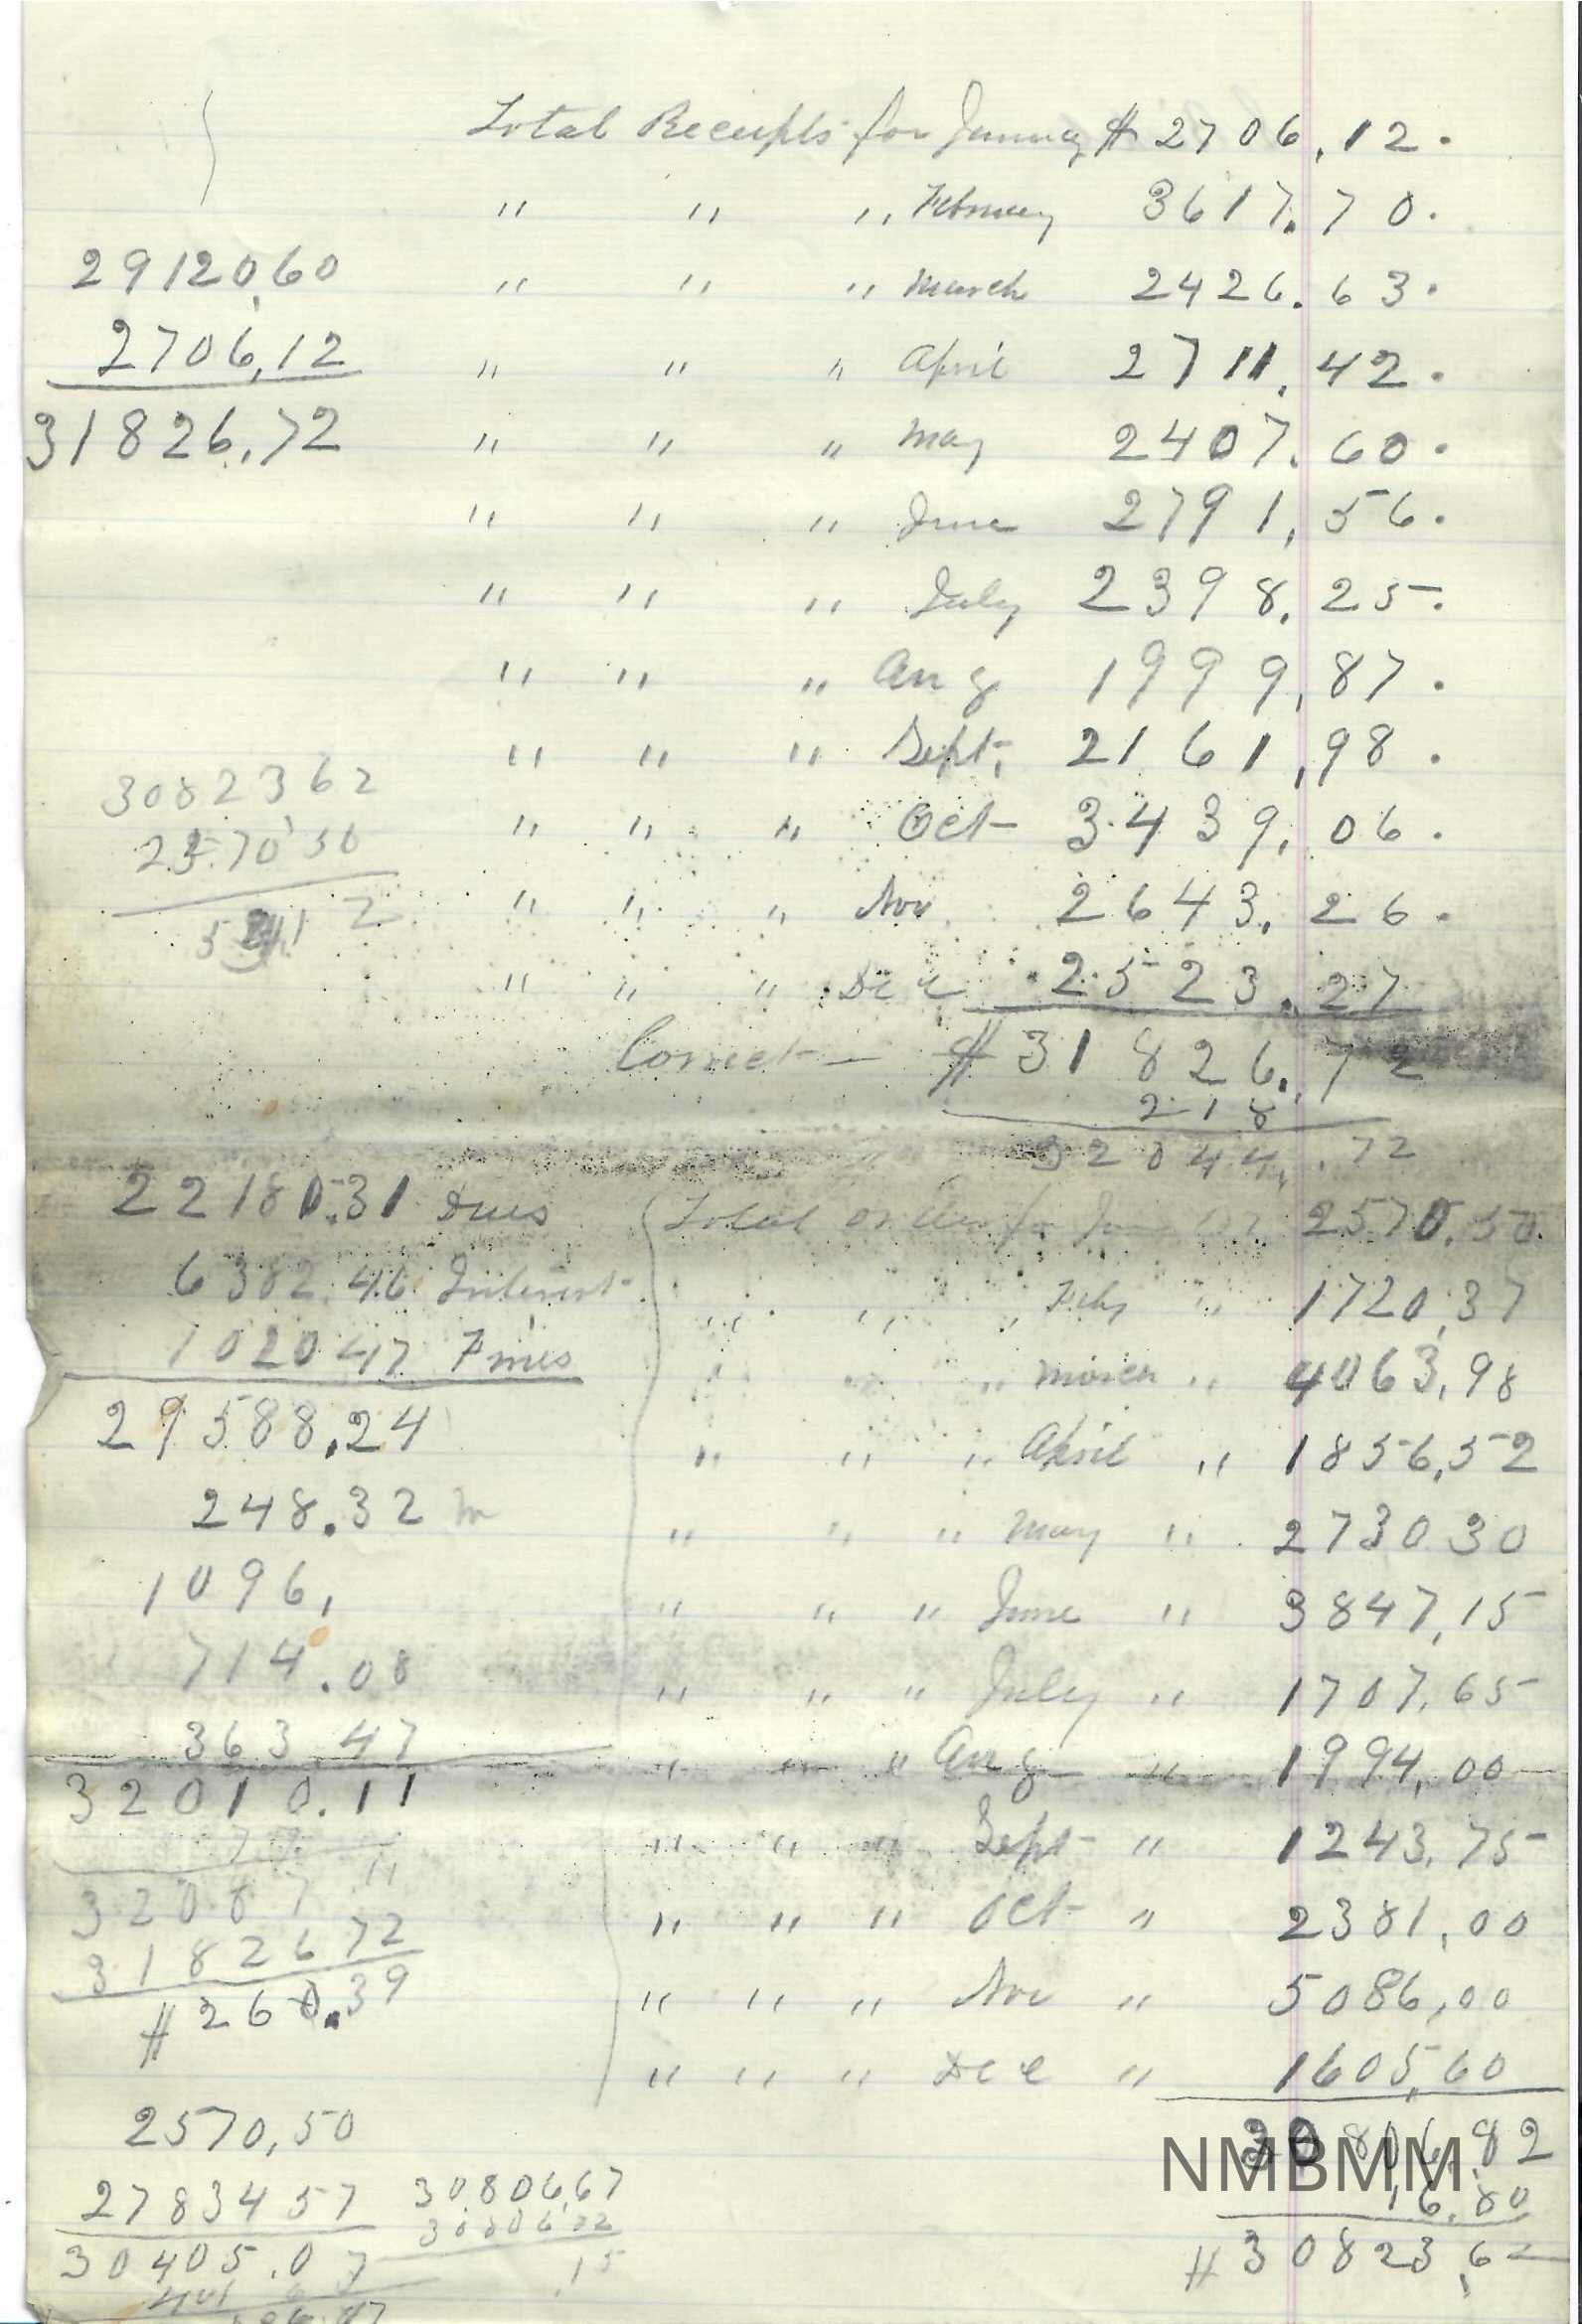 Total Receipts for January $ 2706.12.
" " " February 3617.70.
2912060
" " " March 2426.63.
2706,12
" " " April 2711.42.
31826,72
" " " May 2407.60.
" " " June 2791,56.
" " " July 2398.25.
" " " Aug 1999,87.
" " " Sept. 2161,98.
3082362
" " " Oct 3439, 06.
257050
" " " Nov 2643. 26.
" " " Dec 2523.27
Correct — $ 31826.72
218
32044.72
22180.31 Dues
Total orders for 2570.50.
6382.46 Interest
" " " Feby " 1720,37
1020 47 Fines
" " " March " 4063,98
29588.24
" " " April " 1856,52
248.32
" " " May " 2730 30
1096,
" " " June " 3847,15
714.08
" " " July " 1707,65
363 47
" " " Aug " 1994,00
32010.11
77
" " " Sept " 1243,75
32087 11
" " " Oct " 2381,00
31826 72
" " " Nov " 5086,00
$ 260.39
" " " Dec " 1605,60
2570,50
30806.82
NMBMM
27834 57
30,806,67
30806 82
16.80
30405.07
.15
$ 30823,62